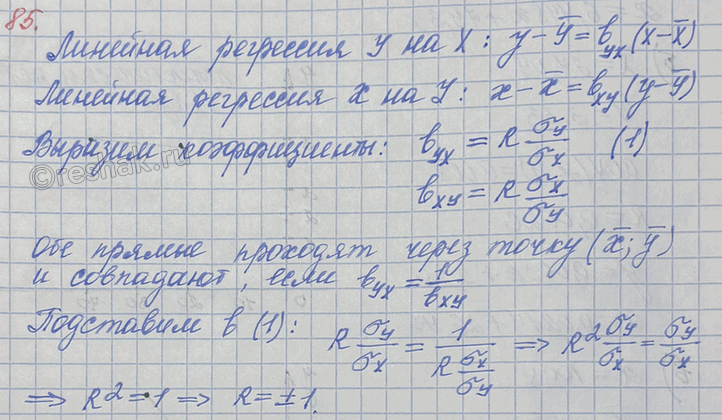 85.
Линейная регрессия y на x: y-y̅=b_yx(x-x̅)
Линейная регрессия x на y: x-x̅=b_xy(y-y̅)
Выразим коэффициенты: b_yx = R σy/σx (1)
b_xy = R σx/σy
©reshak.ru
Обе прямые проходят через точку (x̅; y̅)
и совпадают, если b_yx = 1/b_xy
Подставим в (1): R σy/σx = 1/(R σx/σy) => R² σy/σx = σy/σx
=> R² = 1 => R = ±1.